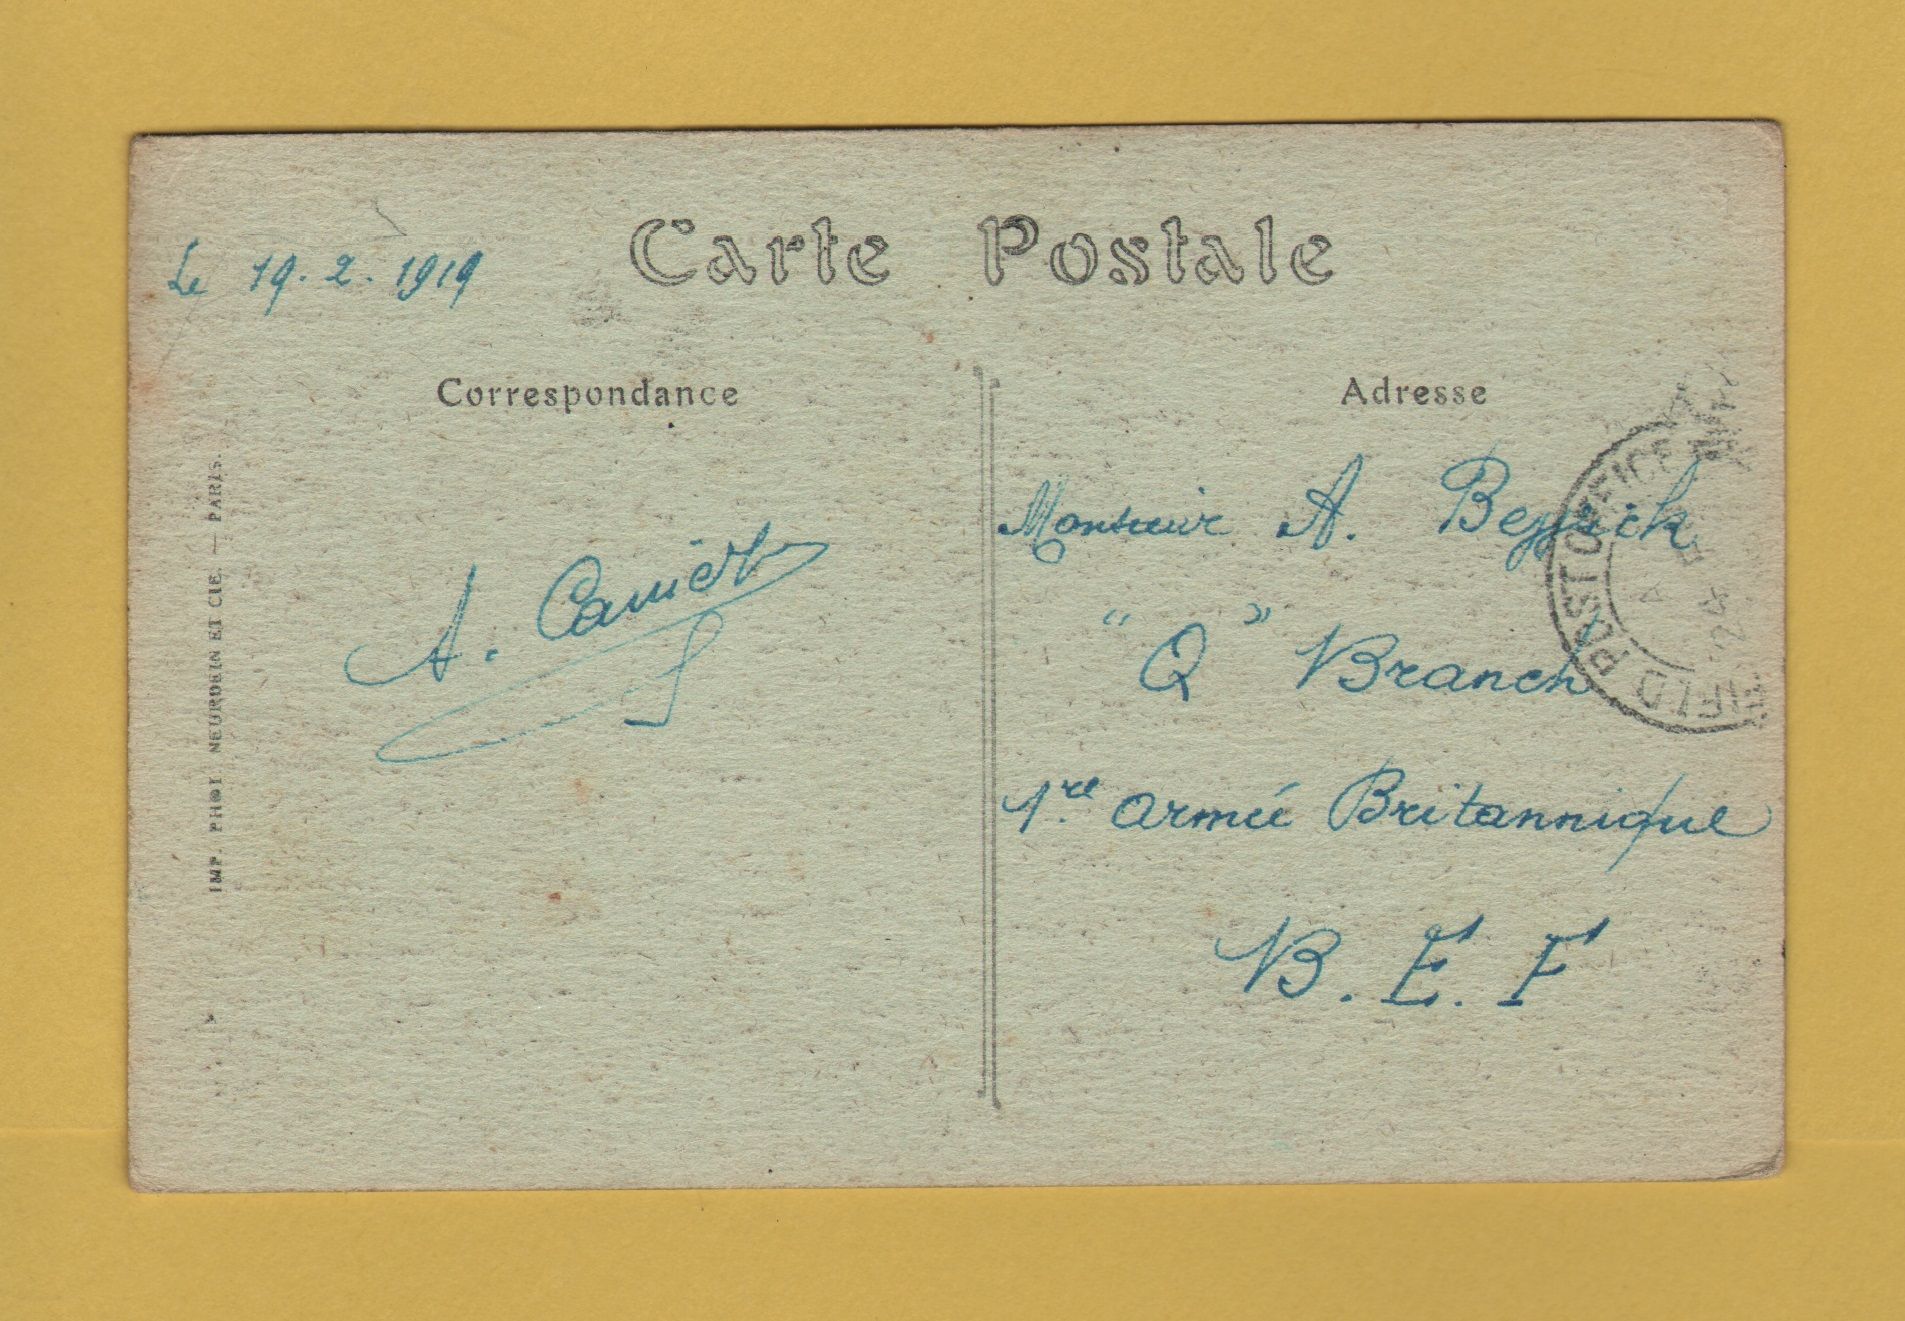 Carte Postale
Le 19.2.1919
Correspondance
Adresse
A.
Monsieur A.
"Q" Branch
1re armée Britannique
B.E.F
FIELD POST OFFICE
24
IMP. PHOT. NEURDEIN ET CIE. — PARIS.